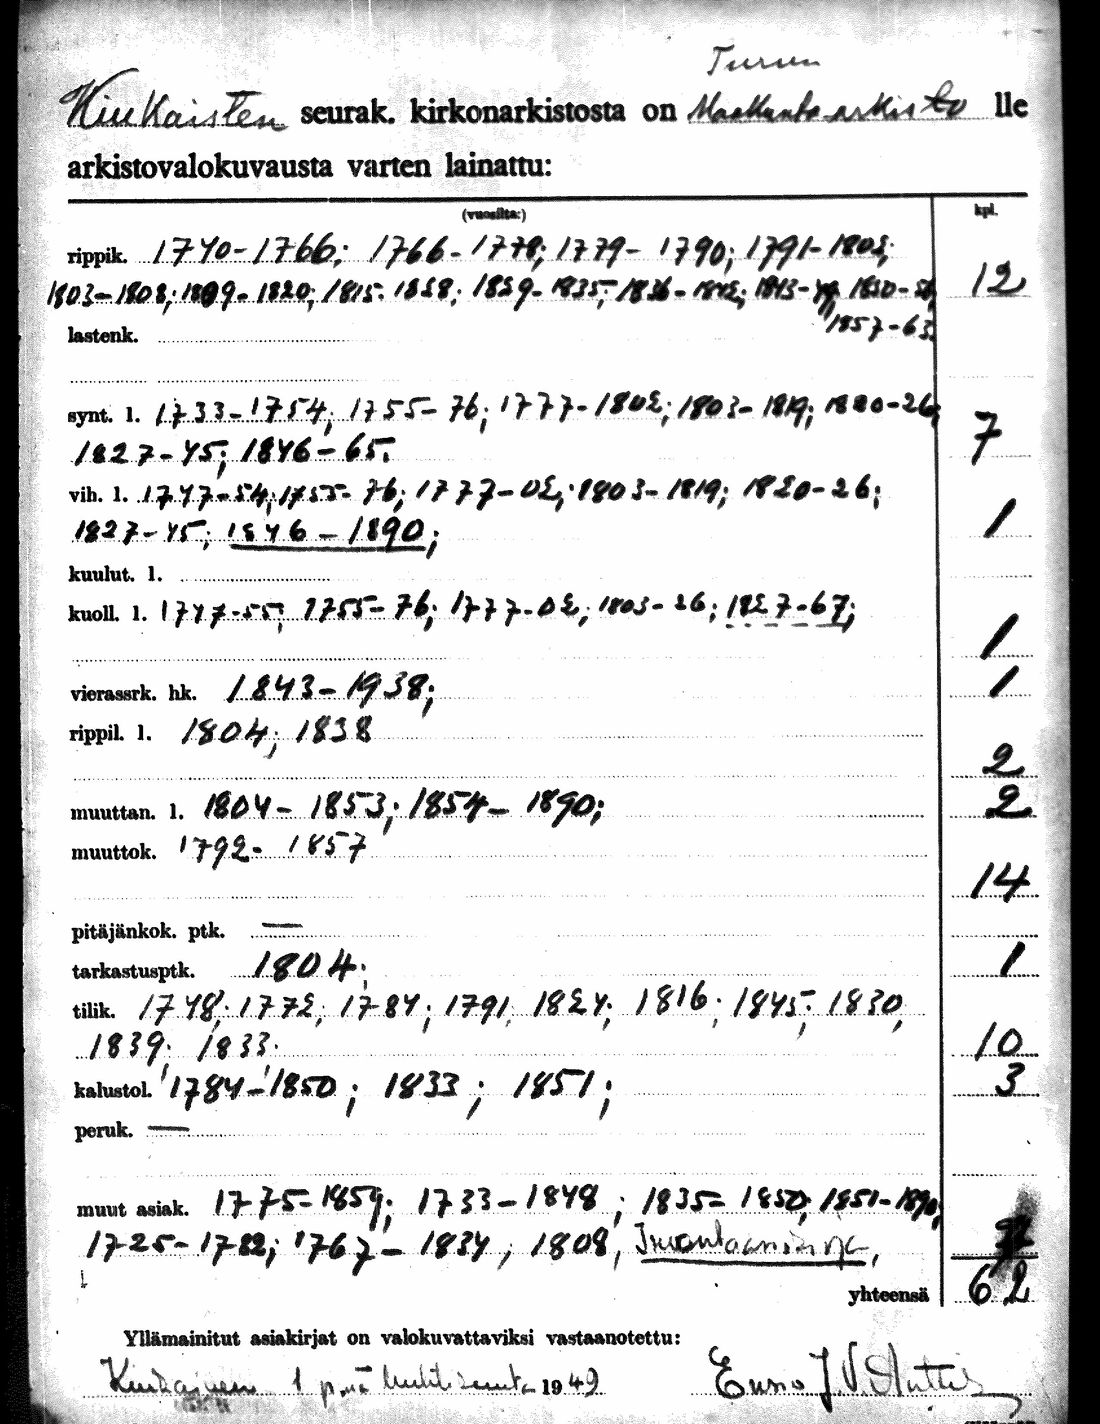 Turun
Kiukaisten seurak. kirkonarkistosta on Maakunta-arkisto lle
arkistovalokuvausta varten lainattu:
(vuosilta:) kpl.
rippik. 1740-1766; 1766-1778; 1779-1790; 1791-1802;
1803-1808; 1809-1820; 1815-1828; 1829-1835; 1836-1842; 1843-49; 1850-56; 12
lastenk. 1857-63.
synt. l. 1733-1754; 1755-76; 1777-1802; 1803-1819; 1820-26;
1827-45; 1846-65. 7
vih. l. 1747-54; 1755-76; 1777-02; 1803-1819; 1820-26;
1827-45; 1846-1890; 1
kuulut. l.
kuoll. l. 1747-55; 1755-76; 1777-02; 1803-26; 1827-67;
1
vierassrk. hk. 1843-1938; 1
rippil. l. 1804; 1838
2
muuttan. l. 1804-1853; 1854-1890; 2
muuttok. 1792-1857
14
pitäjänkok. ptk. —
tarkastusptk. 1804; 1
tilik. 1748; 1772; 1784; 1791, 1824; 1816; 1845; 1830,
1839; 1833. 10
kalustol. 1784-1850; 1833; 1851; 3
peruk. —
muut asiak. 1775-1859; 1733-1848; 1835-1850; 1851-1890;
1725-1782; 1767-1834, 1808, Invontaarikirja,
yhteensä 62
Yllämainitut asiakirjat on valokuvattaviksi vastaanotettu:
Kiukainen 1 p:nä huhtikuuta 1949 Eino J. V.